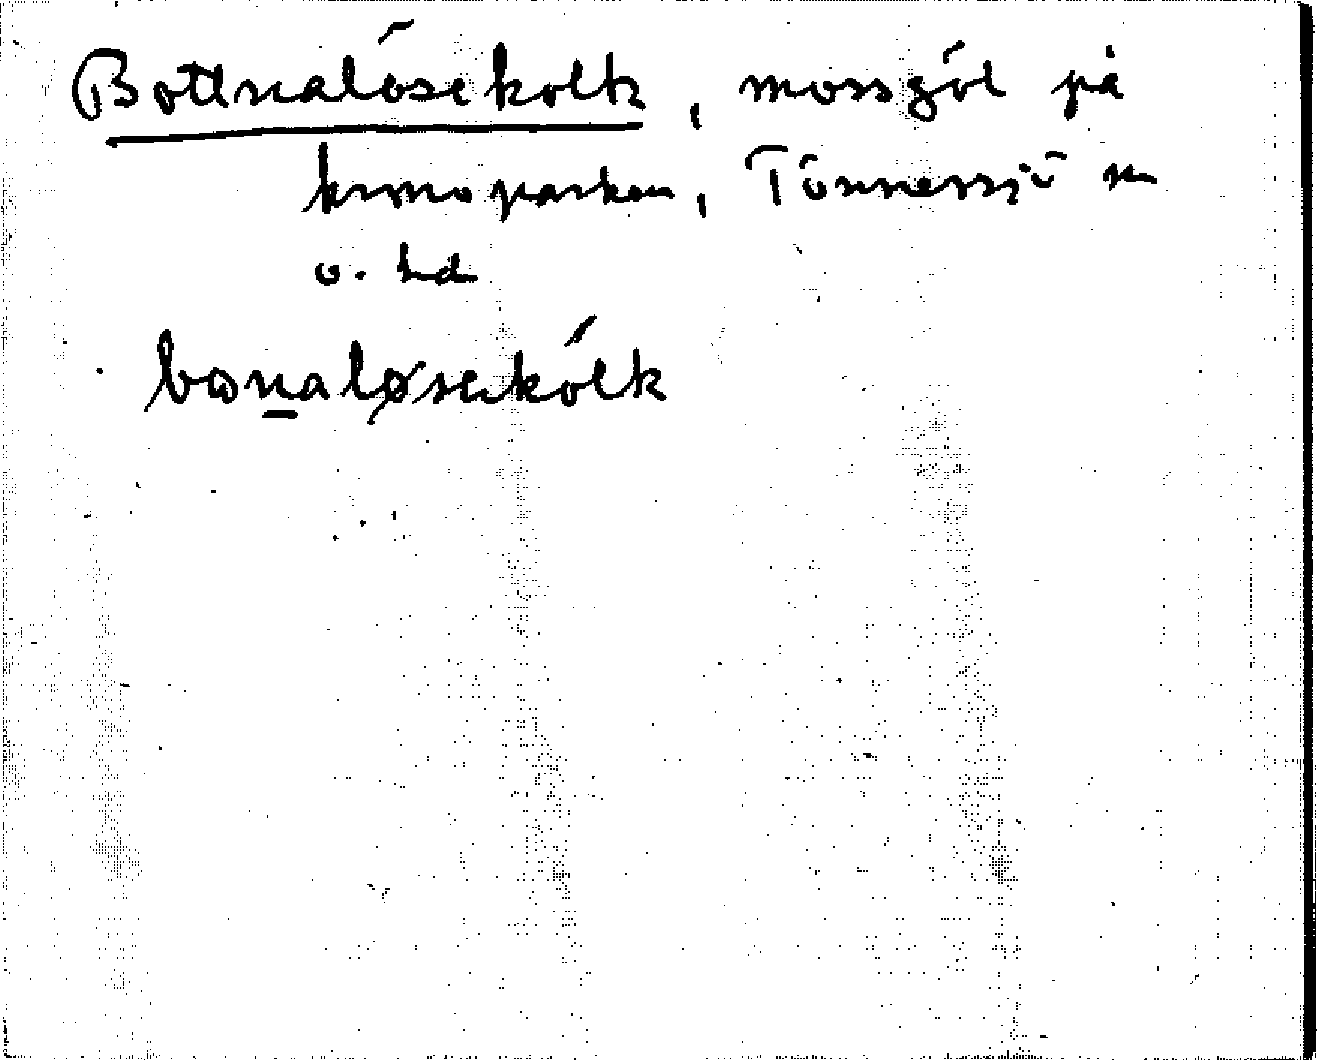 Bottnalösekolk, mossgöl på
kronoparken, Tönnersjö sn
o. hd
bonaløsekólk